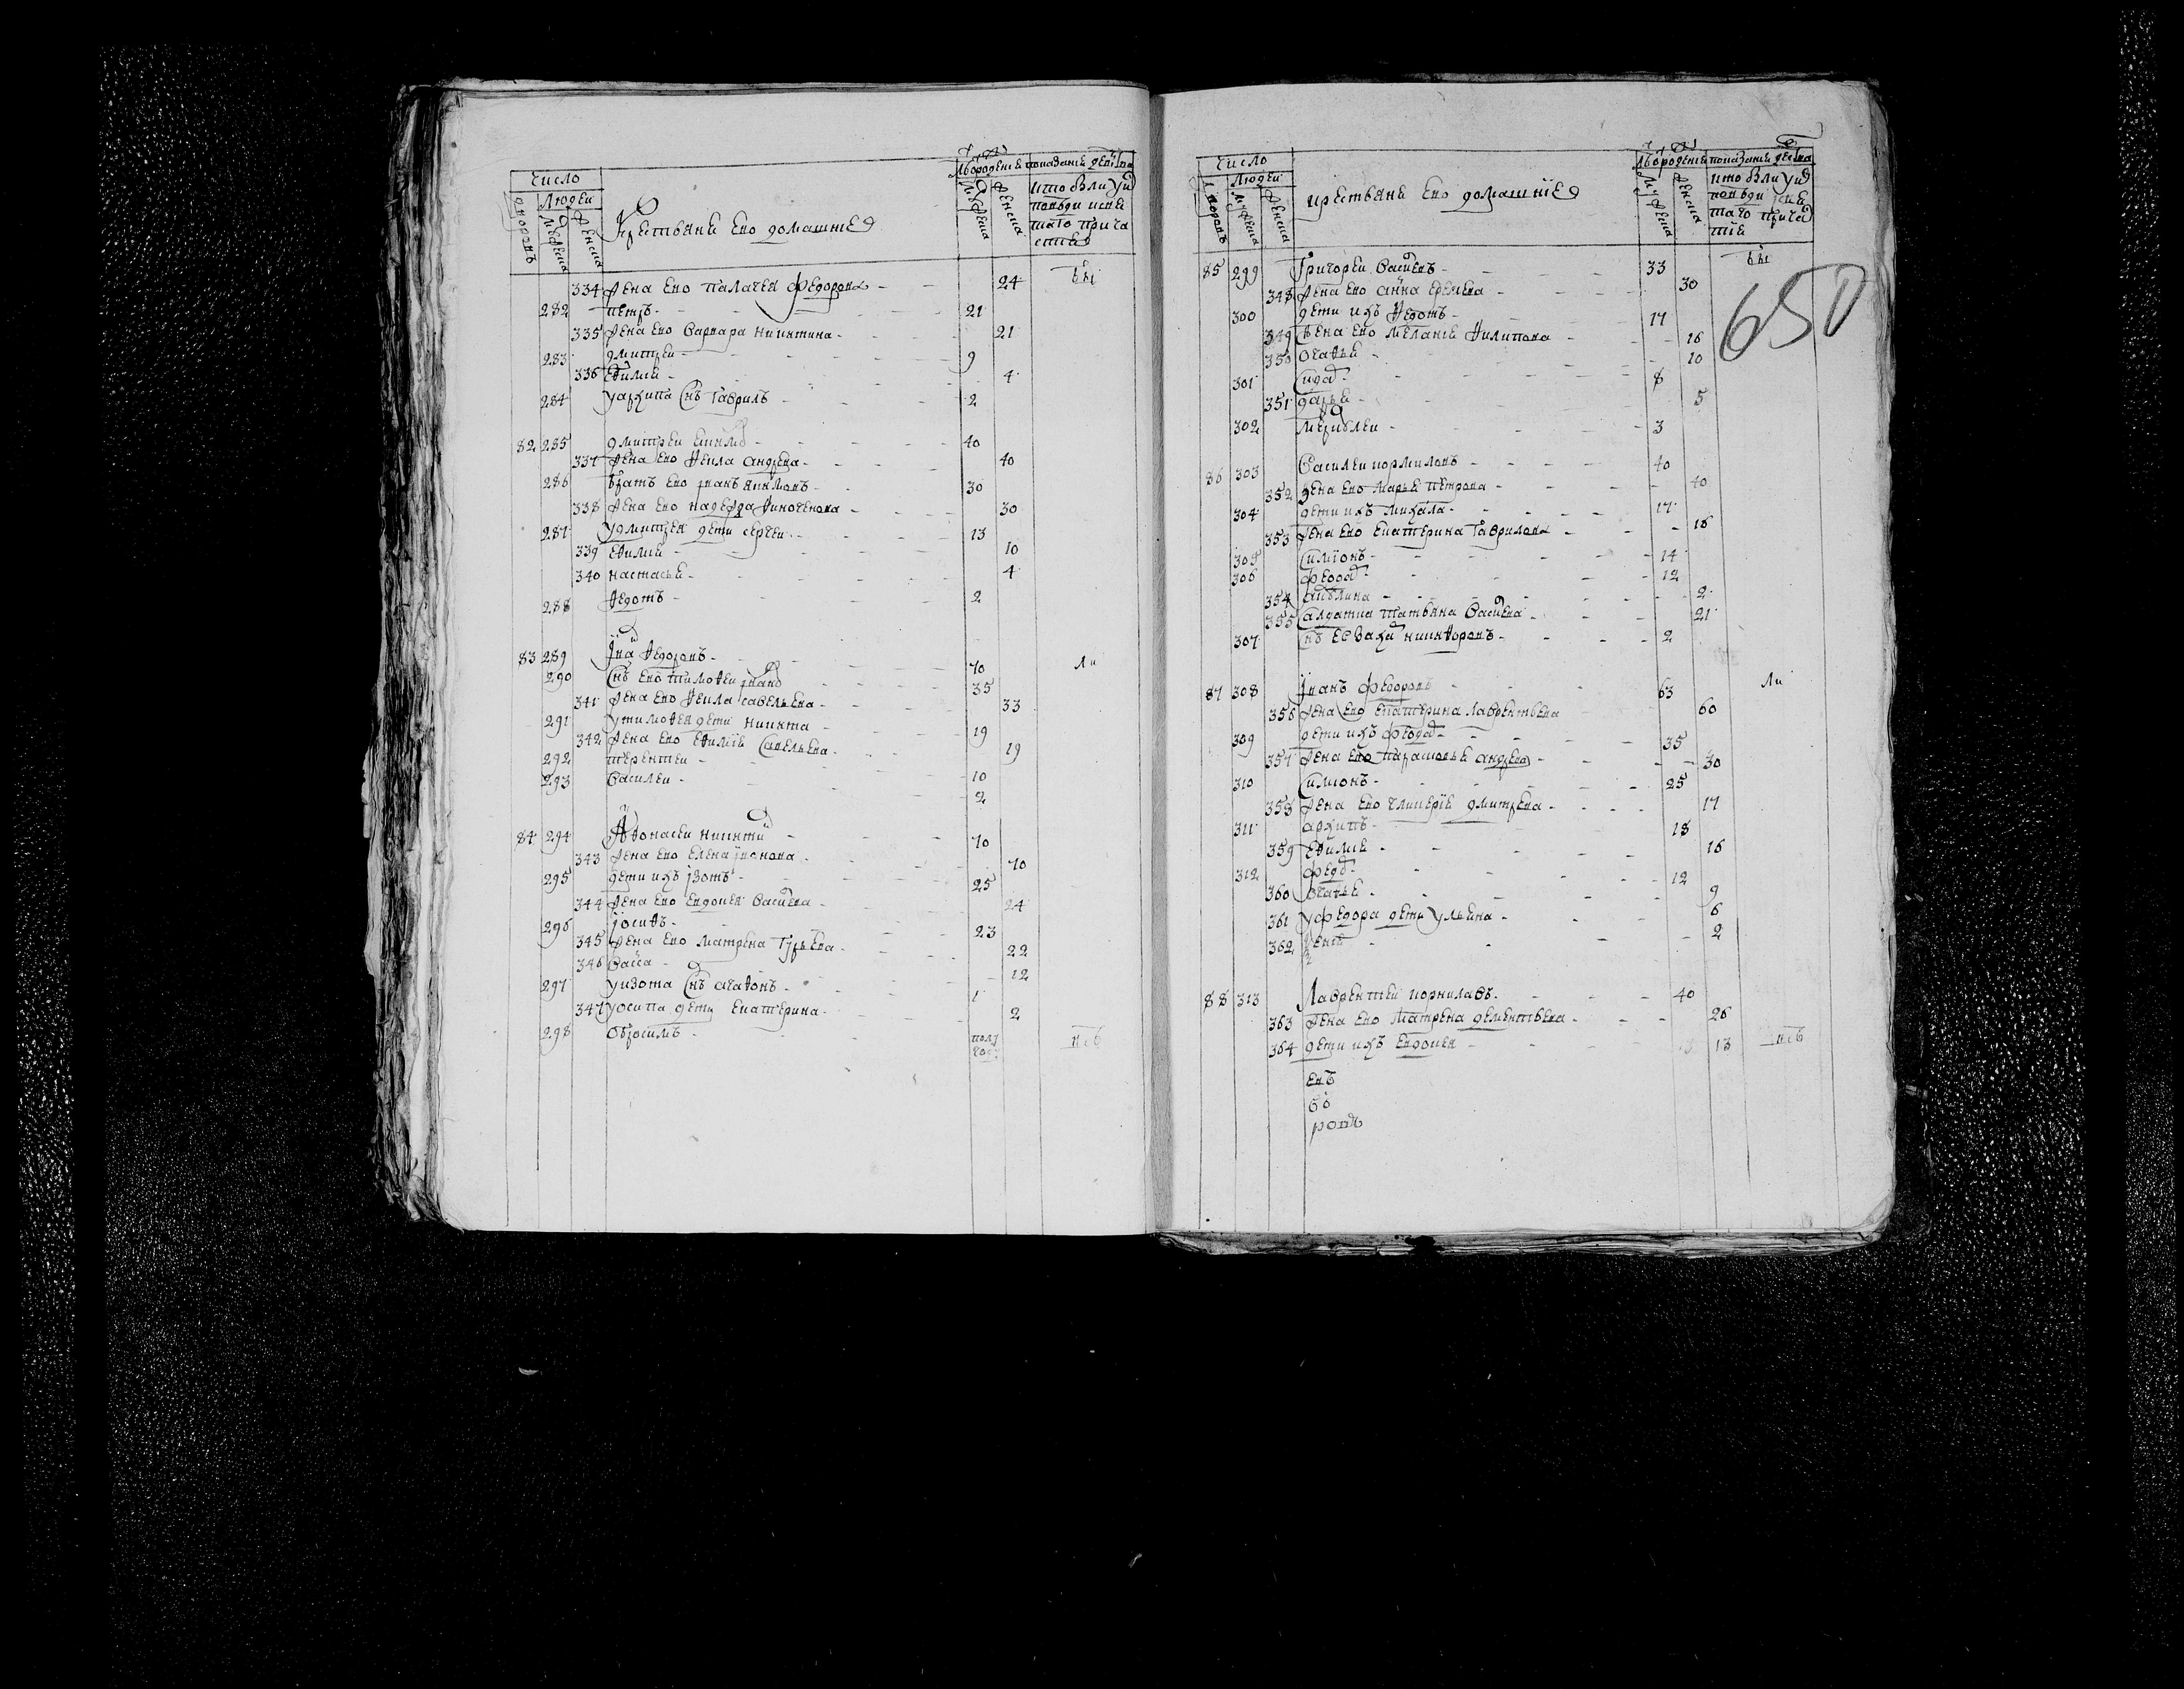 Число
Людей
дворовъ
Мужеска
Женска
Крестьяне ево домашние
Лѣ от рождения
Мужеска
Женска
показание действа
кто былъ у исповеди и свята го прича стия
334 жена ево палагея федорова 24 бы
282 петръ 21
335 жена ево варвара никитина 21
283 дмитреи 9
336 ефимия 4
284 у архипа снъ гаврилъ 2
82 285 дмитреи екимо 40
337 жена ево фекла андреева 40
286 братъ ево иванъ якимовъ 30
338 жена ево надежда финогенова 30
287 у дмитрея дети сергеи 13
339 ефимия 10
340 настасья 4
288 федотъ 2
83 289 Ива федоровъ 70 ли
290 снъ ево тимофеи ивано 35
341 жена ево фекла савельева 33
291 у тимофея дети никита 19
342 жена ево ефимия савельева 19
292 терентеи 10
293 василеи 2
84 294 Афонасеи никити 70
343 жена ево елена иванова 70
295 дети ихъ изотъ 25
344 жена ево евдокея василева 24
296 иосифъ 23
345 жена ево матрена гурьева 22
346 васса 12
297 у изота снъ агафонъ 1
347 у осипа дети екатерина 2
298 обросимъ полу году исв
Число
Людей
дворовъ
Мужеска
Женска
крестьяне ево домашние
Лѣ от рождения
Мужеска
Женска
показание действа
кто былъ у исповеди и свя таго прича стия
650
85 299 Григореи василевъ 33 бы
348 жена ево анна еремеева 30
300 дети ихъ федотъ 17
349 жена ево мелания филипова 16
350 агафья 10
301 сидо 8
351 дарья 5
302 меркулеи 3
86 303 василеи кормиловъ 40
352 жена ево марья петрова 40
304 дети ихъ михала 17
353 жена ево екатерина гаврилова 18
305 симионъ 14
306 федо 12
354 акулина 2
355 салдатка татьяна василева 21
307 снъ ее заха никифоровъ 2
87 308 Иванъ федоровъ 63 ли
356 жена ево екатерина лаврентьева 60
309 дети ихъ федо 35
357 жена ево парасковья андреева 30
310 симионъ 25
358 жена ево гликерия дмитрева 17
311 архипъ 18
359 ефимия 16
312 федо 12
360 агафья 9
361 у федора дети ульяна 6
362 ксения 2
88 313 Лаврентеи корниловъ 40
363 жена ево матрена дементьева 26
364 дети ихъ евдокея 13 исв
енъ
бо
ровъ